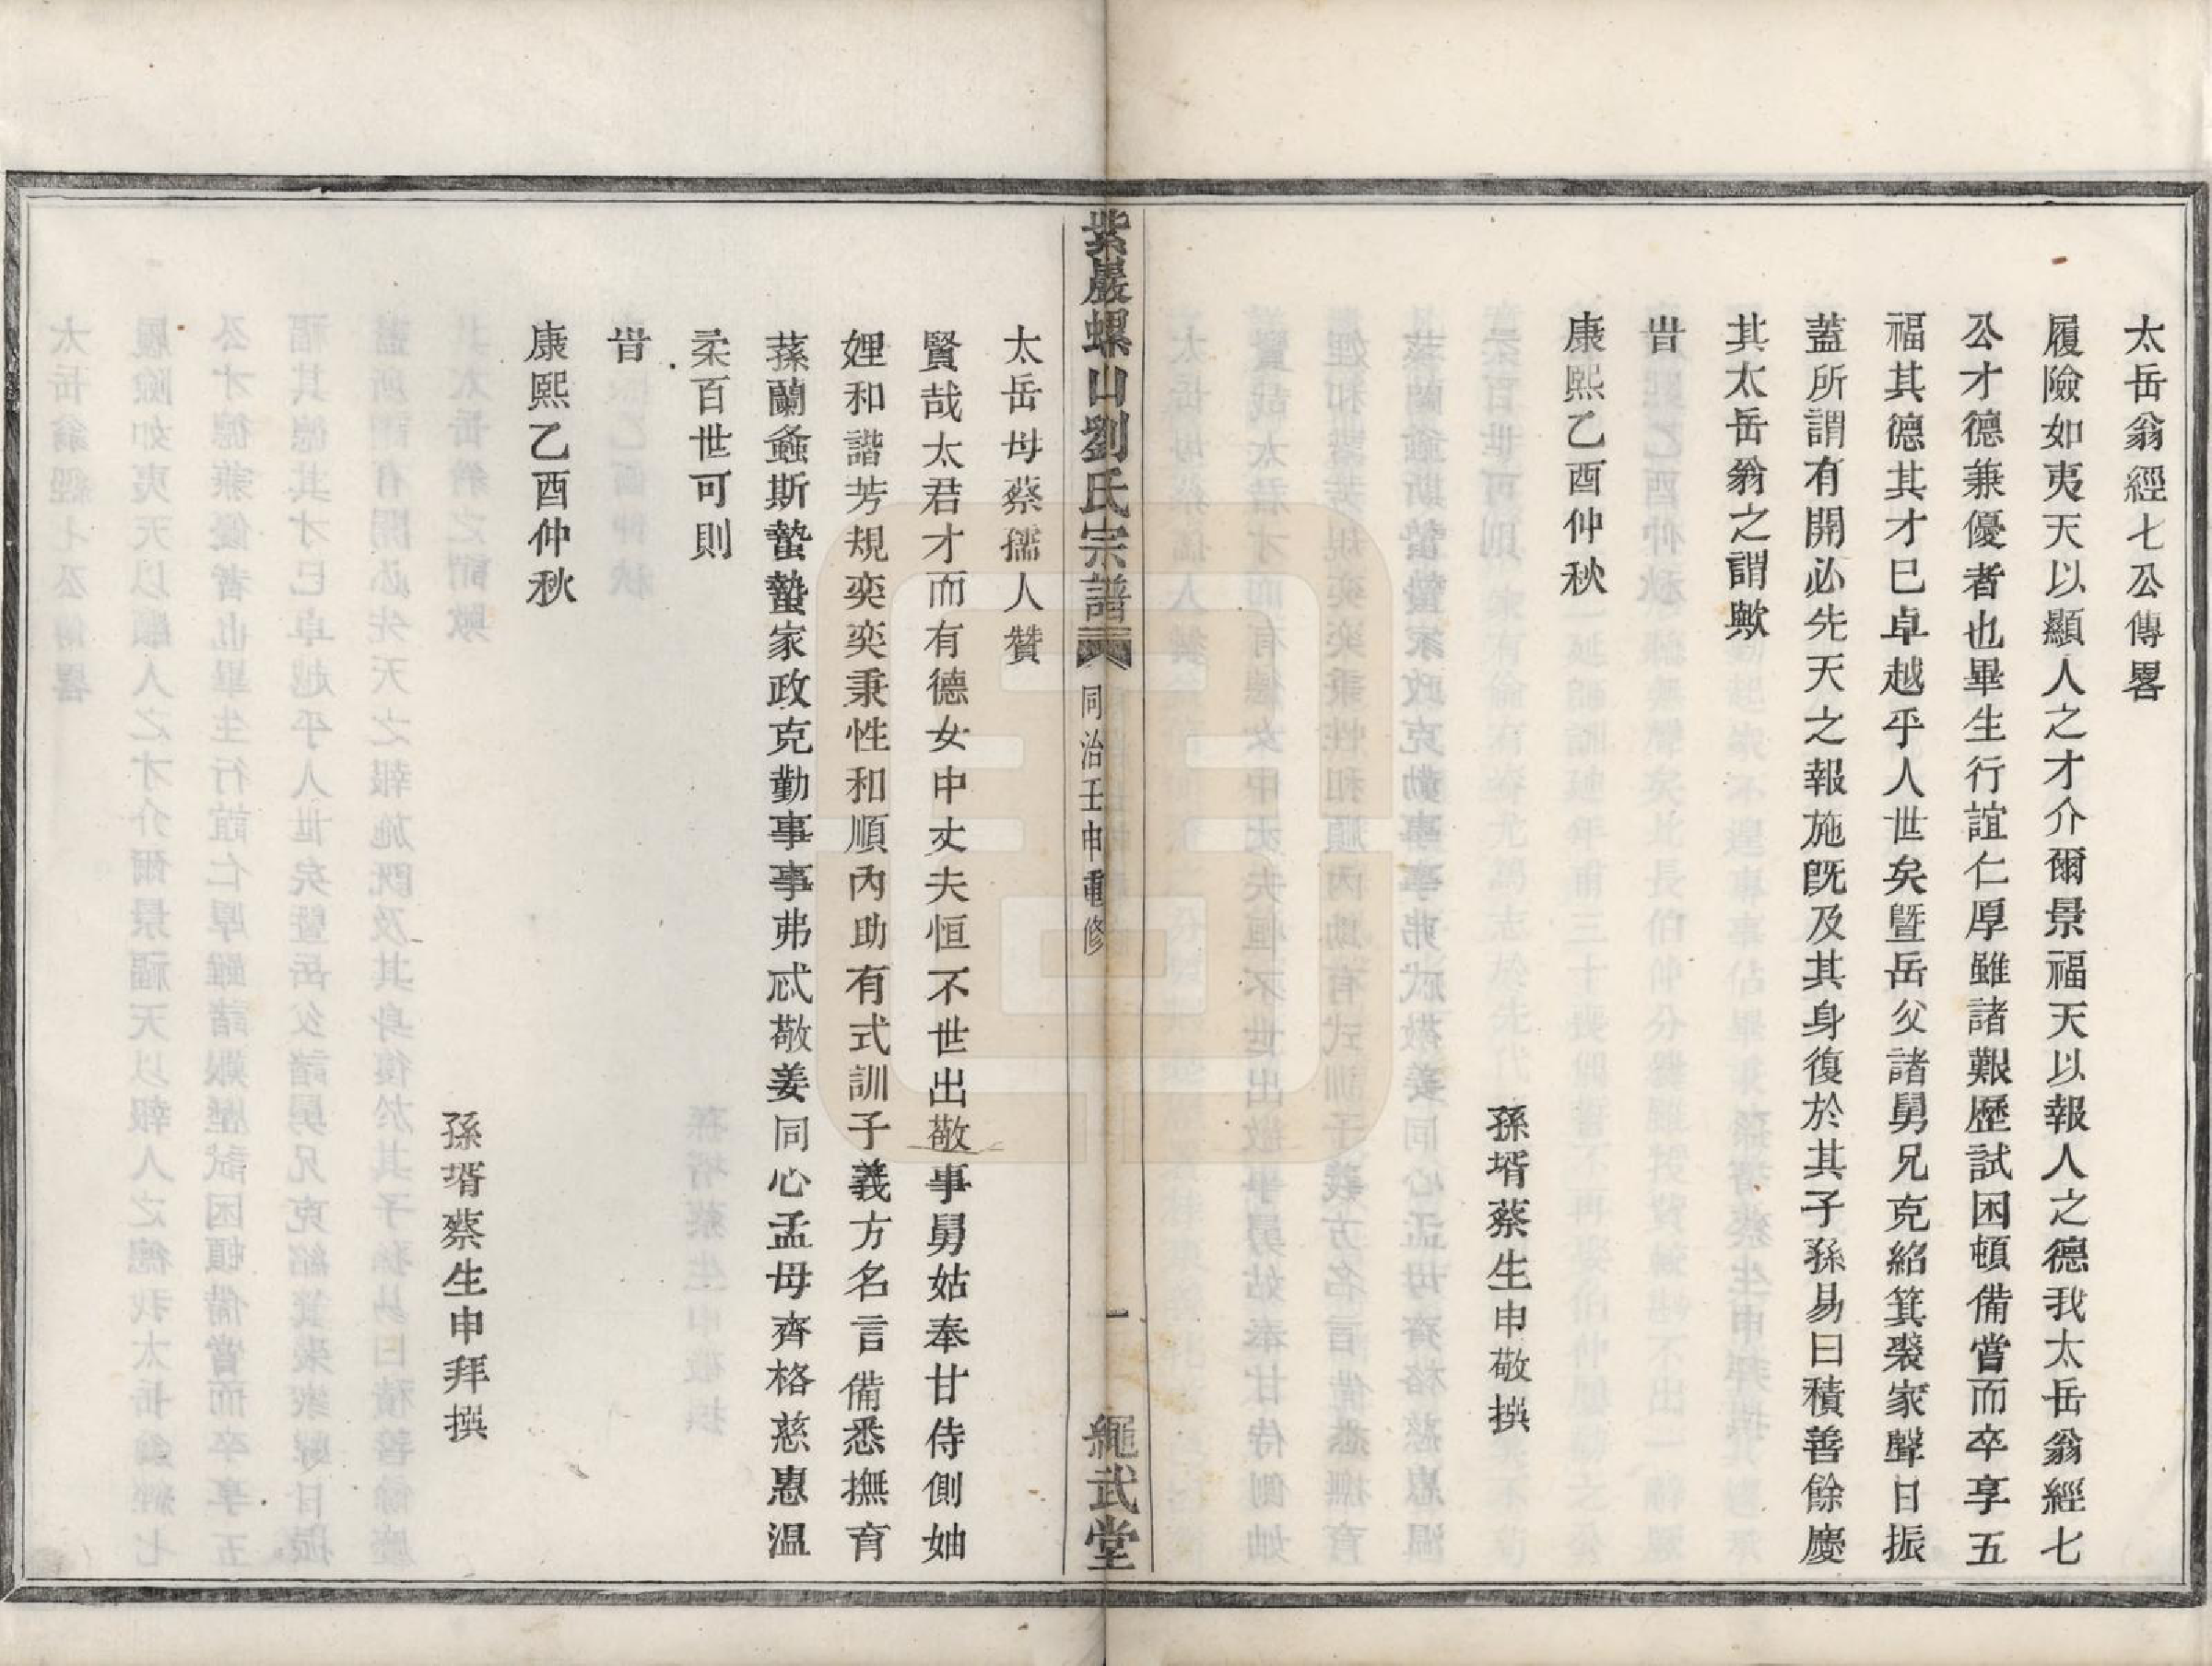 太岳翁經七公傳畧
履險如夷天以顯人之才介爾景福天以報人之德我太岳翁經七
公才德兼優者也畢生行誼仁厚雖諸艱歷試困頓備嘗而卒享五
福其德其才巳卓越乎人世矣曁岳父諸舅兄克紹箕裘家聲日振
蓋所謂有開必先天之報施旣及其身復於其子孫易曰積善餘慶
其太岳翁之謂歟
旹
康熙乙酉仲秋
孫壻蔡生申敬撰
紫巖螺山劉氏宗譜 同治壬申重修 一 繩武堂
太岳母蔡孺人贊
賢哉太君才而有德女中丈夫恒不世出敬事舅姑奉甘侍側妯
娌和諧芳規奕奕秉性和順內助有式訓子義方名言備悉撫育
蓀蘭螽斯蟄蟄家政克勤事事弗忒敬姜同心孟母齊格慈惠温
柔百世可則
旹
康熙乙酉仲秋
孫壻蔡生申拜撰